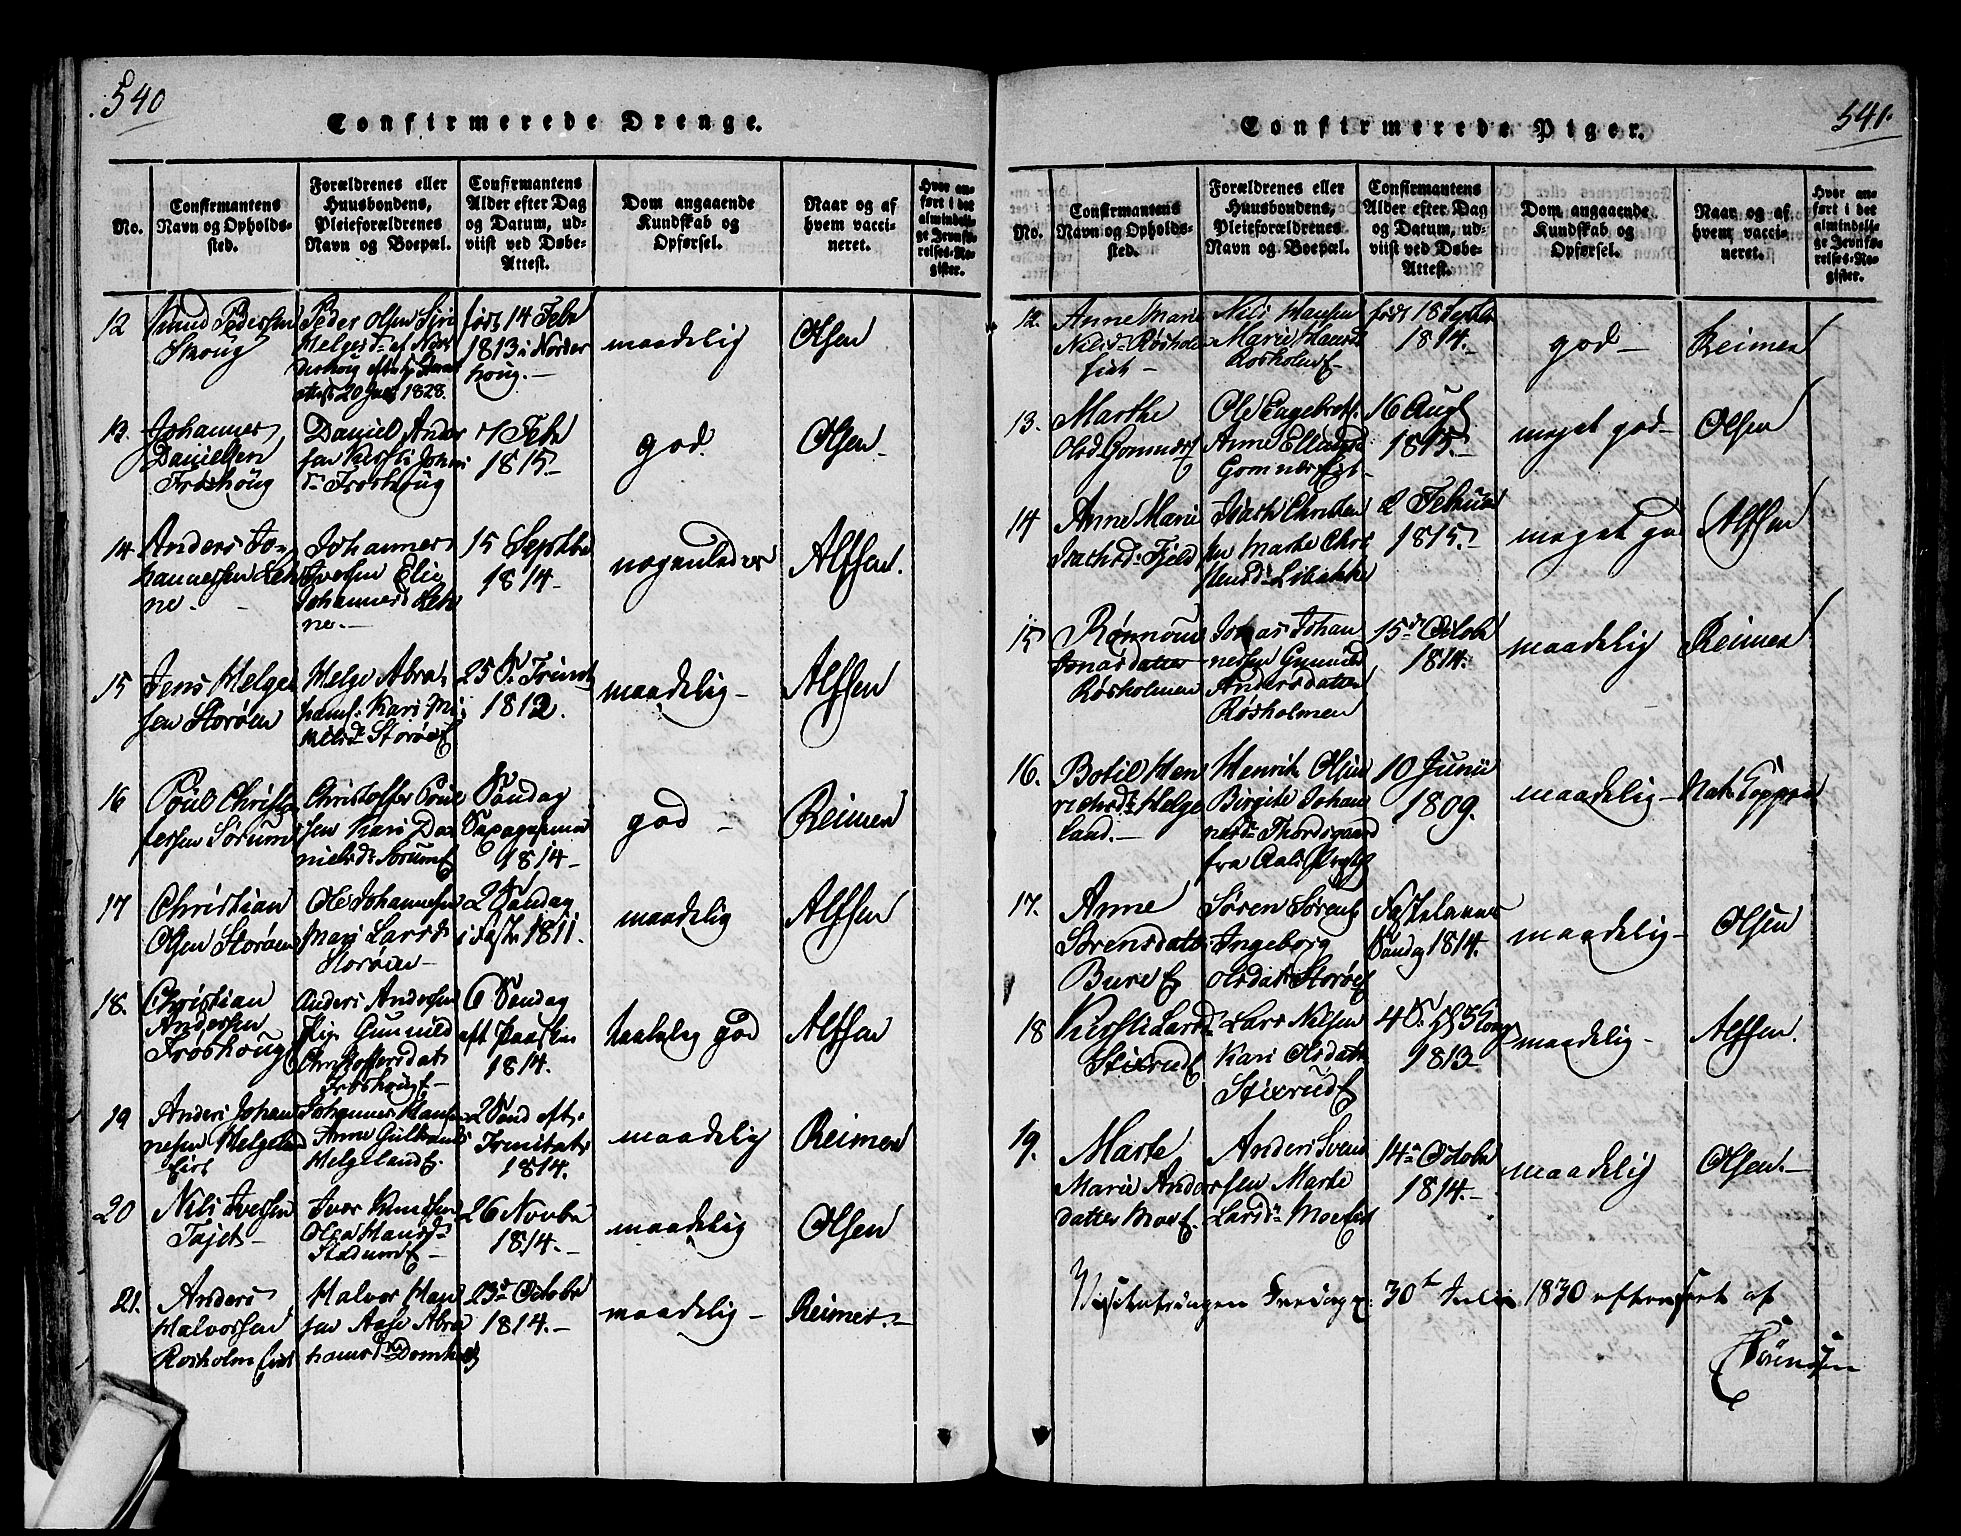 540
Confirmerede Drenge.
No.
Confirmantens Navn og Opholdssted.
Forældrenes eller Huusbondens, Pleieforældrenes Navn og Boepæl.
Confirmantens Alder efter Dag og Datum, udviist ved Døbe-Attest.
Dom angaaende Kundskab og Opførsel.
Naar og af hvem vaccineret.
Hvor anført i det almindelige Jevnførelses-Register.
12
Knud Pedersen
Skoug
Peder Olsen Siri
Helgesd. af Nor
derhoug
20 1828.
født 14 Febr
1813 i Norder
houg.
maadelig
Olsen
13.
Johannes
Danielsen
Frøshoug
Daniel Ander
sen Kirsti Johan
d. Froshoug
7 Febr
1815
god.
Olsen
14
Anders Jo-
hannessen Leh
ne.
Johannes
Iversen Elie
Johannesd. Leh
ne.
15 Septbr
1814
nogenledes
Alfsen.
15
Jens Helge
sen Storøen
Helge Abra
hams. Kari Mi
kelsd. Storøe
25 S. Trinit
1812.
maadelig
Alfsen
16
Poul Christo
fersen Sørum
Christoffer Poul
sen Kari Da
nielsd. Sorum
Søndag
Septuagesima
1814
god
Reimer
17
Christian
Olsen Storøen
Ole Johannesen
Mari Larsd
Storøen
2 Søndag
i Faste 1811.
maadelig
Alfsen
18.
Christian
Andersen
Frøshoug
Anders Andersen
Gunnild
Christoffersdatr
Froshoug
6 Søndag
eft Paaske
1814.
taalelig god
Alfsen
19
Anders Johan
nesen Helgeland
Eiet
Johannes Hansen
Anne Gulbrands
Helgeland E.
2 Sønd eft.
Trinitatis
1814.
maadelig
Reimer
20
Nils Iversen
Tajet
Iver Knudsen
Olea Hansd.
26 Novbr
1814.
maadelig
Olsen
21.
Anders
Halvorsen
Rosholm Eiet
Halvor Han
sen Aase Abra
hamsd.
23d Octobr
1814.
maadelig
Reimer.
541.
Confirmerede Piger.
No.
Confirmantens Navn og Opholdssted.
Forældrenes eller Huusbondens, Pleieforældrenes Navn og Boepæl.
Confirmantens Alder efter Dag og Datum, udviist ved Døbe-Attest.
Dom angaaende Kundskab og Opførsel.
Naar og af hvem vaccineret.
Hvor anført i det almindelige Jevnførelses-Register.
12.
Anne Marie
Nilsd. Røsholm
Eiet
Nils Hansen
Marie Hansd
Rosholm E
født 18 Septbr
1814.
god
Reimer
13.
Marthe
Olsd. Gomnes
Ole Engebrets.
Anne Ellingsd
Gomnes Eiet
16 Aug
1815.
meget god
Olsen
14
Anne Marie
Isachsd. Fjeld
Isach Christen
sen Marte Chri
stensd. Libakke
2 Februar
1815.
meget go
Alfsen
15
Rønnoug
Jonasdatter
Røsholmen
Jonas Johan
nessen Gunnild
Andersdatter
Røsholmen
15d Octobr
1814.
maadelig
Reimer
16.
Botil Hen
richsd. Helge
land.
Henrik Olsen
Birgite Johan
nesd. Thordsgaard
fra Aals Prgld
10 Junii
1809.
maadelig
Nat. Kopper
17.
Anne
Sørensdatter
Bure E
Søren Sørens
Ingeborg
Olsdatr Storøe
Fastelavns
Søndag 1814.
maadelig
Olsen
18
Kirsti Larsd.
Stixrud E
Lars Nilsen
Kari Olsdatr
Stixrud E
4 S.
1813
maadelig
Alfsen.
19.
Marte
Marie Anders
datter Moe E.
Anders Svend
sen Marte
Larsd. Moe Eiet
14 Octobr
1814.
maadelig
Olsen.
Visitatsen Fredag 30te Julii 1830 efterseet af
Sørensen